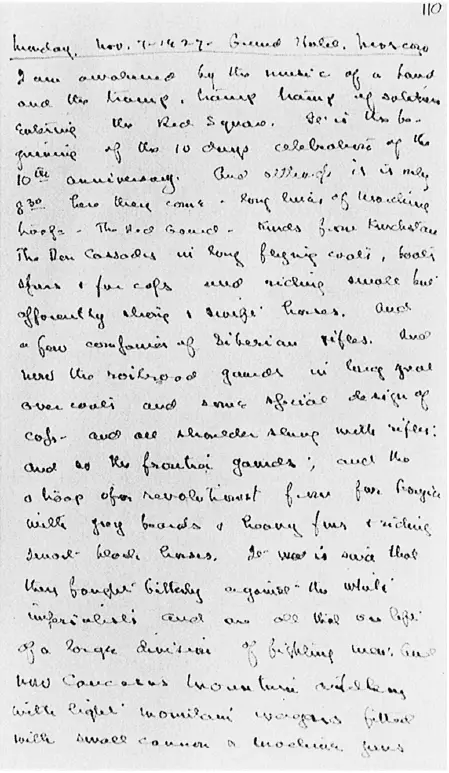 110
Monday, Nov. 7-1927- Grand Hotel, Moscow
I am awakened by the music of a band
and the tramp, tramp tramp of soldiers
entering the Red Square. It is the be-
ginning of the 10 days celebration of the
10th anniversary. And although it is only
8 30 here they come - long lines of marching
troops - The Red Guard - Kurds from Kurdistan
The Don Cossacks in long flying coats, boots
spurs & fur caps and riding small but
apparently strong & swift horses. And
a few companies of Siberian rifles. And
now the railroad guards in long great
overcoats and some special design of
caps - and all shoulder slung with rifles:
and so the frontier guards; and the
a troop of revolutionist from far
with grey beards & heavy furs & riding
small black horses. It was is said that
they fought bitterly against the white
imperialists and are all that are left
of a large division of fighting men: And
now Caucasus mountain
with light wagons fitted
with small cannon & machine guns